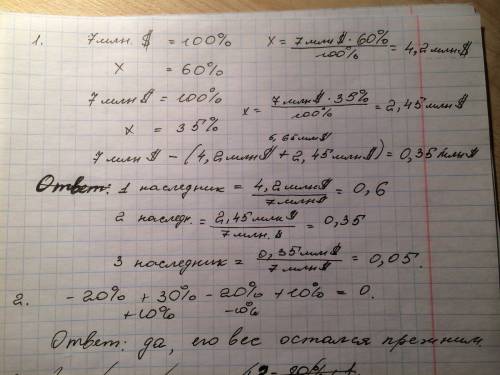 1. 7 млн. $ = 100% x = 7 млн $ · 60% / 100% = 4,2 млн $
x = 60%
7 млн $ = 100% x = 7 млн $ · 35% / 100% = 2,45 млн $
x = 35%
6,65 млн $
7 млн $ - (4,2 млн $ + 2,45 млн $) = 0,35 млн $
Ответ: 1 наследник = 4,2 млн $ / 7 млн $ = 0,6
2 наследн. = 2,45 млн $ / 7 млн. $ = 0,35
3 наследник = 0,35 млн $ / 7 млн $ = 0,05.
2. - 20% + 30% - 20% + 10% = 0.
+10% -10%
Ответ: да, его вес остался прежним.